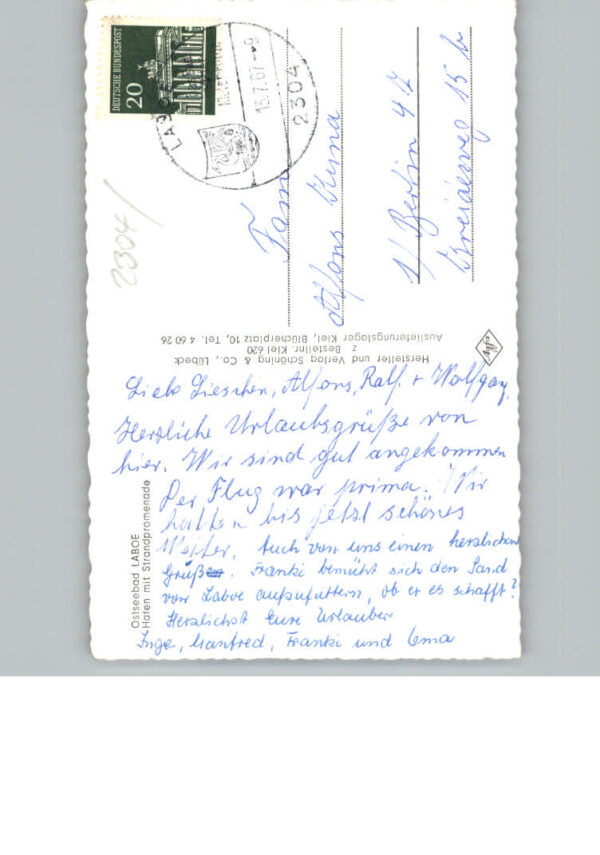 DEUTSCHE BUNDESPOST
20
LABOE
13.7.67-9
2304
2304/
Fam
Alfons
1/ Berlin 47
15 b
Hersteller und Verlag Schöning & Co., Lübeck
z Bestellnr. Kiel 620
Auslieferungslager Kiel, Blücherplatz 10, Tel. 4 60 26
Agfa
Ostseebad LABOE
Hafen mit Strandpromenade
Liebe Lieschen, Alfons, Ralf. + Wolfgang.
Herzliche Urlaubsgrüße von
hier. Wir sind gut angekommen
Der Flug war prima. Wir
hatten bis jetzt schönes
Wetter. Auch von uns einen herzlichen
Gruß. Franki bemüht sich den Sand
von Laboe aufzufuttern, ob er es schafft?
Herzlichst Eure Urlauber
Inge, Manfred, Franki und Oma